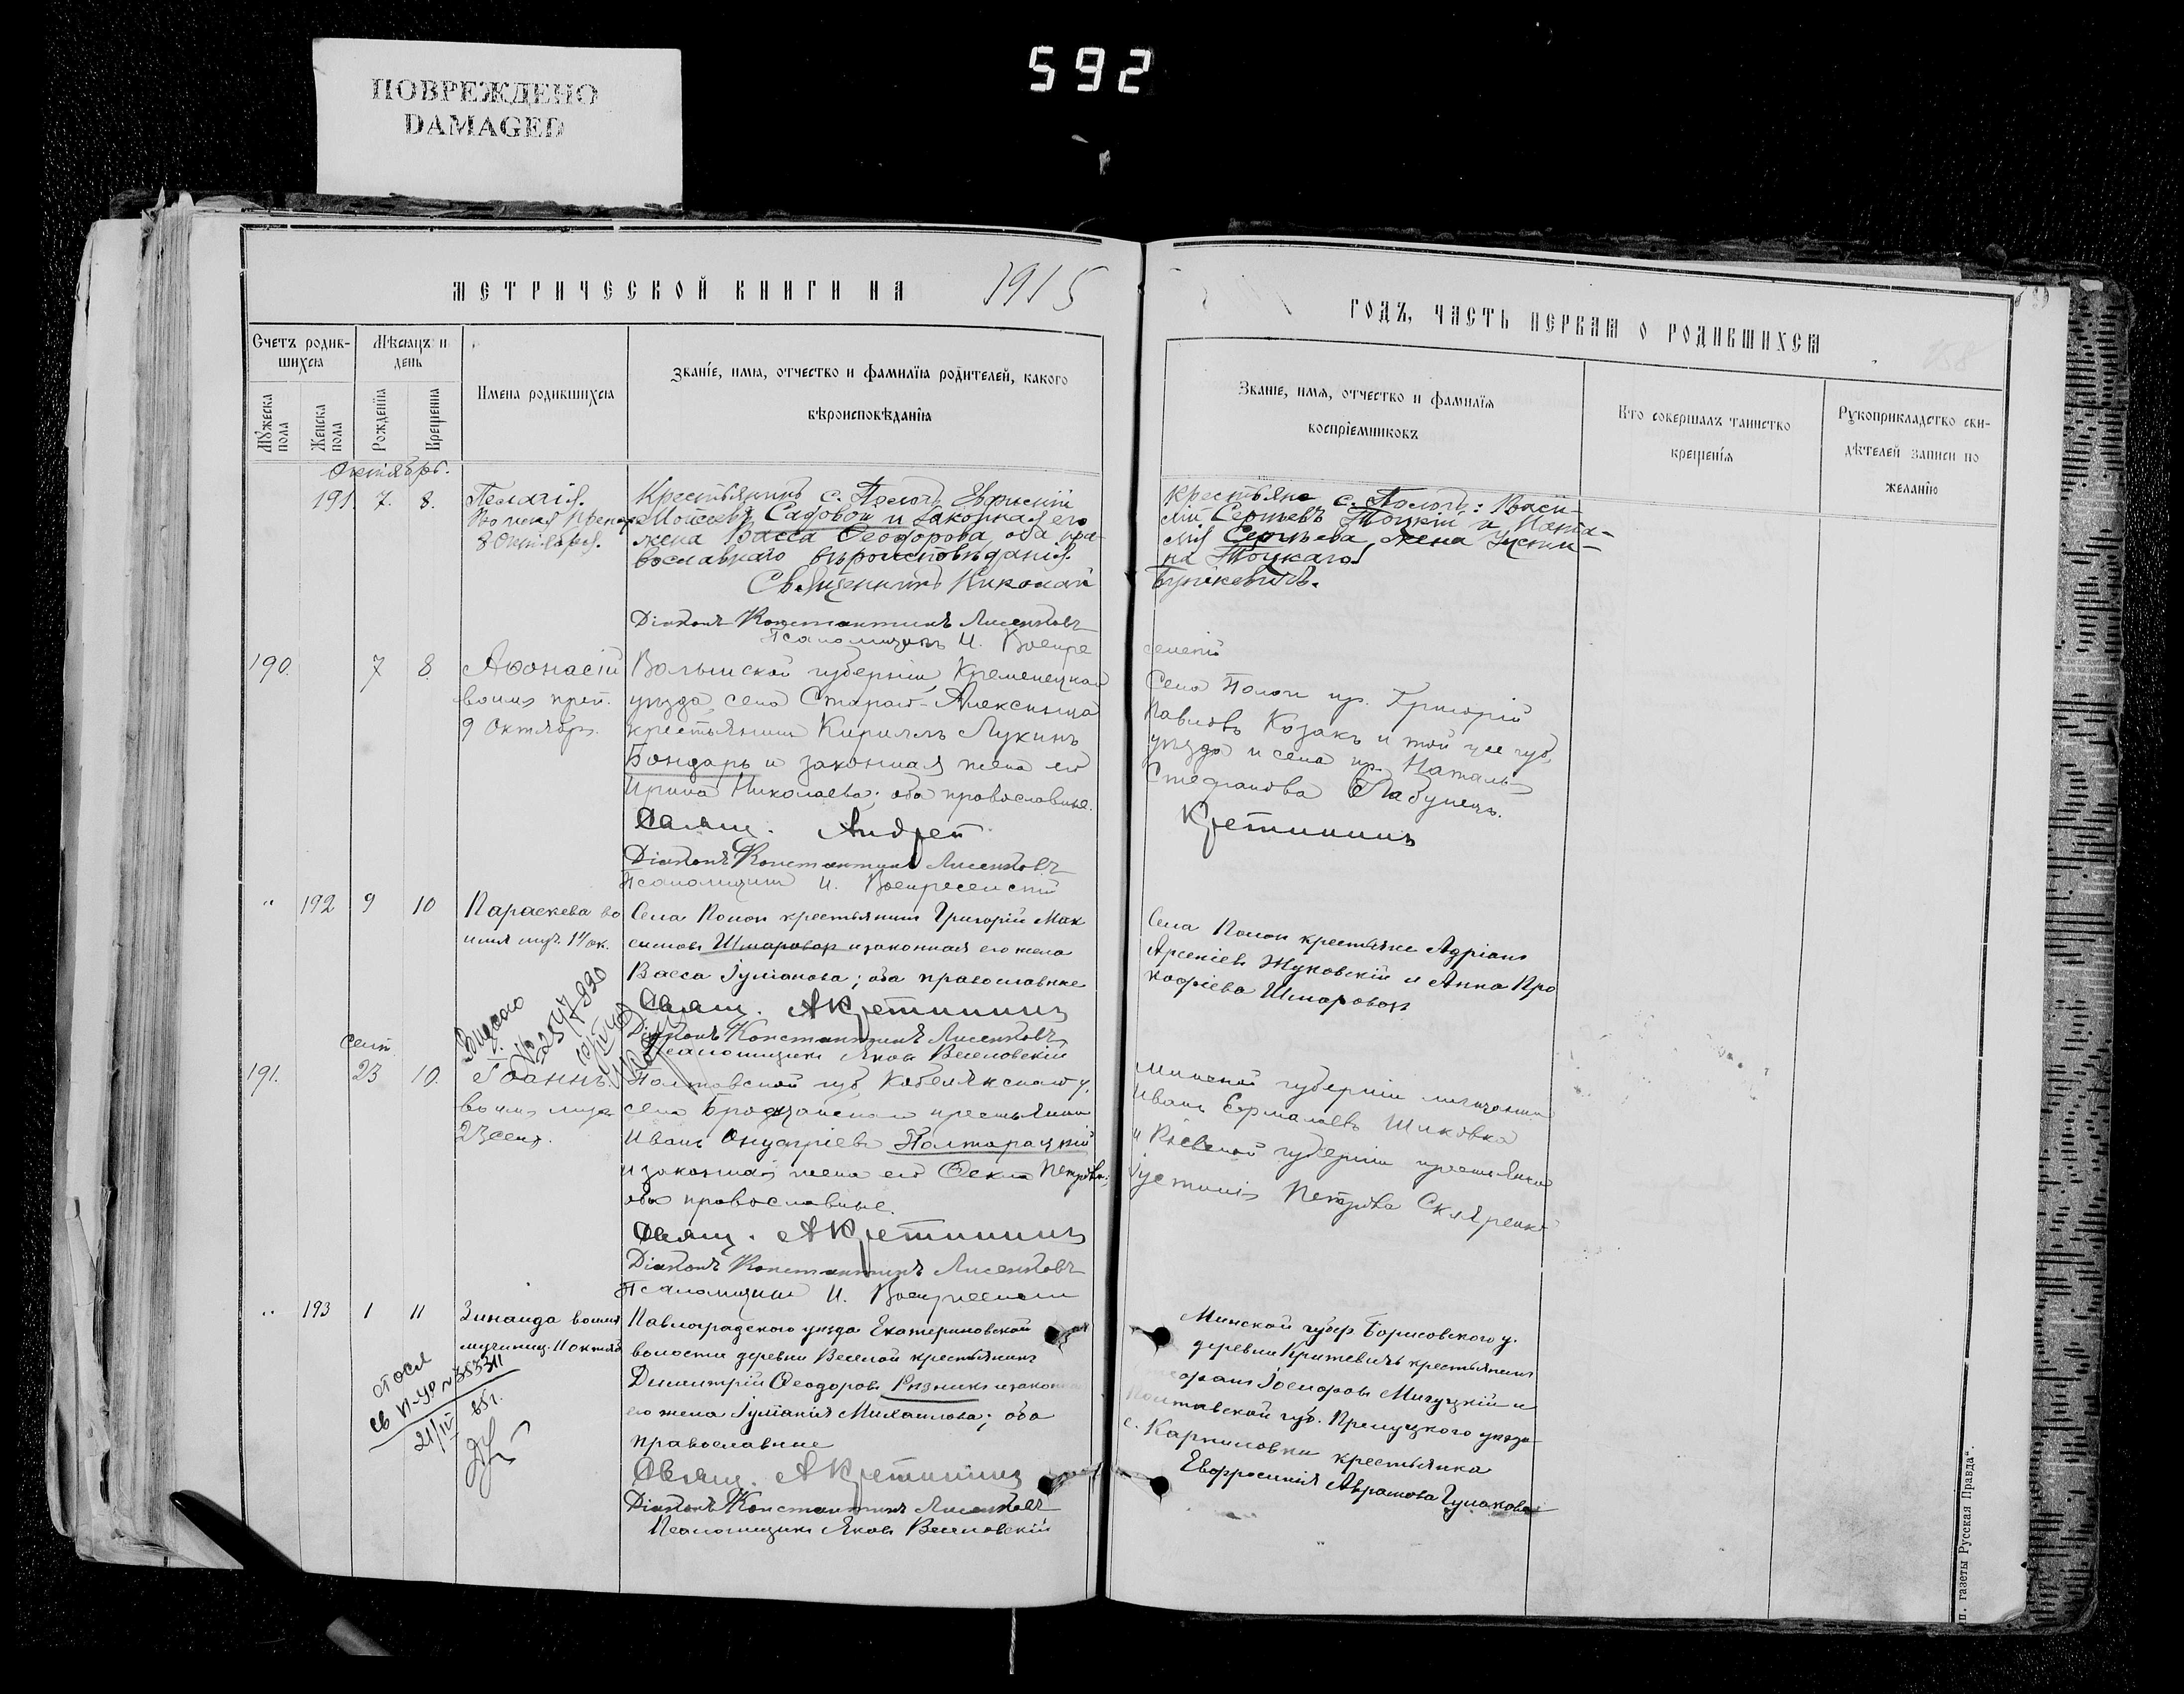 592
ПОВРЕЖДЕНО
DAMAGED
МЕТРИЧЕСКОЙ КНИГИ НА 1915
ГОДЪ, ЧАСТЬ ПЕРВАЯ О РОДИВШИХСЯ
158
Счетъ родив-
шихся
Мѣсяцъ и
день
Мужеска пола
Женска пола
Рожденія
Крещенія
Имена родившихся
Званіе, имя, отчество и фамилія родителей, какого
вѣроисповѣданія
Званіе, имя, отчество и фамилія
воспріемниковъ
Кто совершалъ таинство
крещенія
Рукоприкладство сви-
дѣтелей записи по
желанію
Октябрь.
191. 7. 8.
Пелагія.
Во имя Препод.
8 Октября.
Крестьянинъ с. Пологъ
Моисеевъ Садовой и законная его
жена Васса Ѳеодорова, оба пра-
вославнаго вѣроисповѣданія.
Священникъ Николай
Діаконъ Константинъ Лисенковъ
Псаломщикъ И. Воскре
Крестьяне с. Пологъ: Васи-
лій Сергѣевъ Тоцкій и
Сергѣева, жена Усти-
на Тоцкаго.
сенскій
190. 7 8.
Аѳонасій
во имя преп.
9 Октября.
Волынской губерніи, Кременецкаго
уѣзда, села Стараго-Алексинца
крестьянинъ Кириллъ Лукинъ
Бондарь и законная жена его
Ирина Николаева; оба православные.
Свящ. Андрей
Діаконъ Константинъ Лисенковъ
Псаломщикъ И. Воскресенскій
Села Пологи кр. Григорій
Павловъ Козакъ и той же губ.
уѣзда и села кр. Наталья
Стефанова Бабунецъ.
Кретининъ
" 192 9 10
Параскева во
имя муч. 14 ок.
Села Пологи крестьянинъ Григорій Мак
симовъ Шмаровоз и законная его жена
Васса Іуліанова; оба православные
Свящ. А Кретининъ
Діаконъ Константинъ Лисенковъ
Псаломщикъ Яковъ Веселовскій
Села Пологи крестьяне Адріанъ
Арсеніевъ Жуковскій и Анна Про
кофіева Шмаровозъ
Выдано
№ 2547990
сент.
191. 23 10.
Іоаннъ
во имя
23 сент.
Полтавской губ, Кобелякскаго у.
села крестьянинъ
Иванъ Онуфріевъ Полтарацкій
и законная жена его Ѳекла Петрова;
оба православные.
Свящ. А Кретининъ
Діаконъ Константинъ Лисенковъ
Псаломщикъ И. Воскресенскій
Минской губерніи мѣщанинъ
Иванъ Ермолаевъ
и Кіевской губерніи крестьянка
Іустинія Петрова Скляренко
" 193 1 11
Зинаида во имя
мучениц. 11 октяб
Павлоградского уѣзда Екатериновской
волости деревни Веселой крестьянинъ
Димитрій Ѳеодоровъ Рѣзникъ и законная
его жена Іуліанія Михаилова; оба
православные
Свящ. А Кретининъ
Діаконъ Константинъ Лисенковъ
Псаломщикъ Яковъ Веселовскій
Минской губер. Борисовского у.
деревни Критевичъ крестьянинъ
Полтавской губ. Прилуцкого уѣзда
с. Карпиловки крестьянка
Евфросинія Аврамова
св VI-УР № 353311
21/IV 65г.
п. газеты Русская Правда".